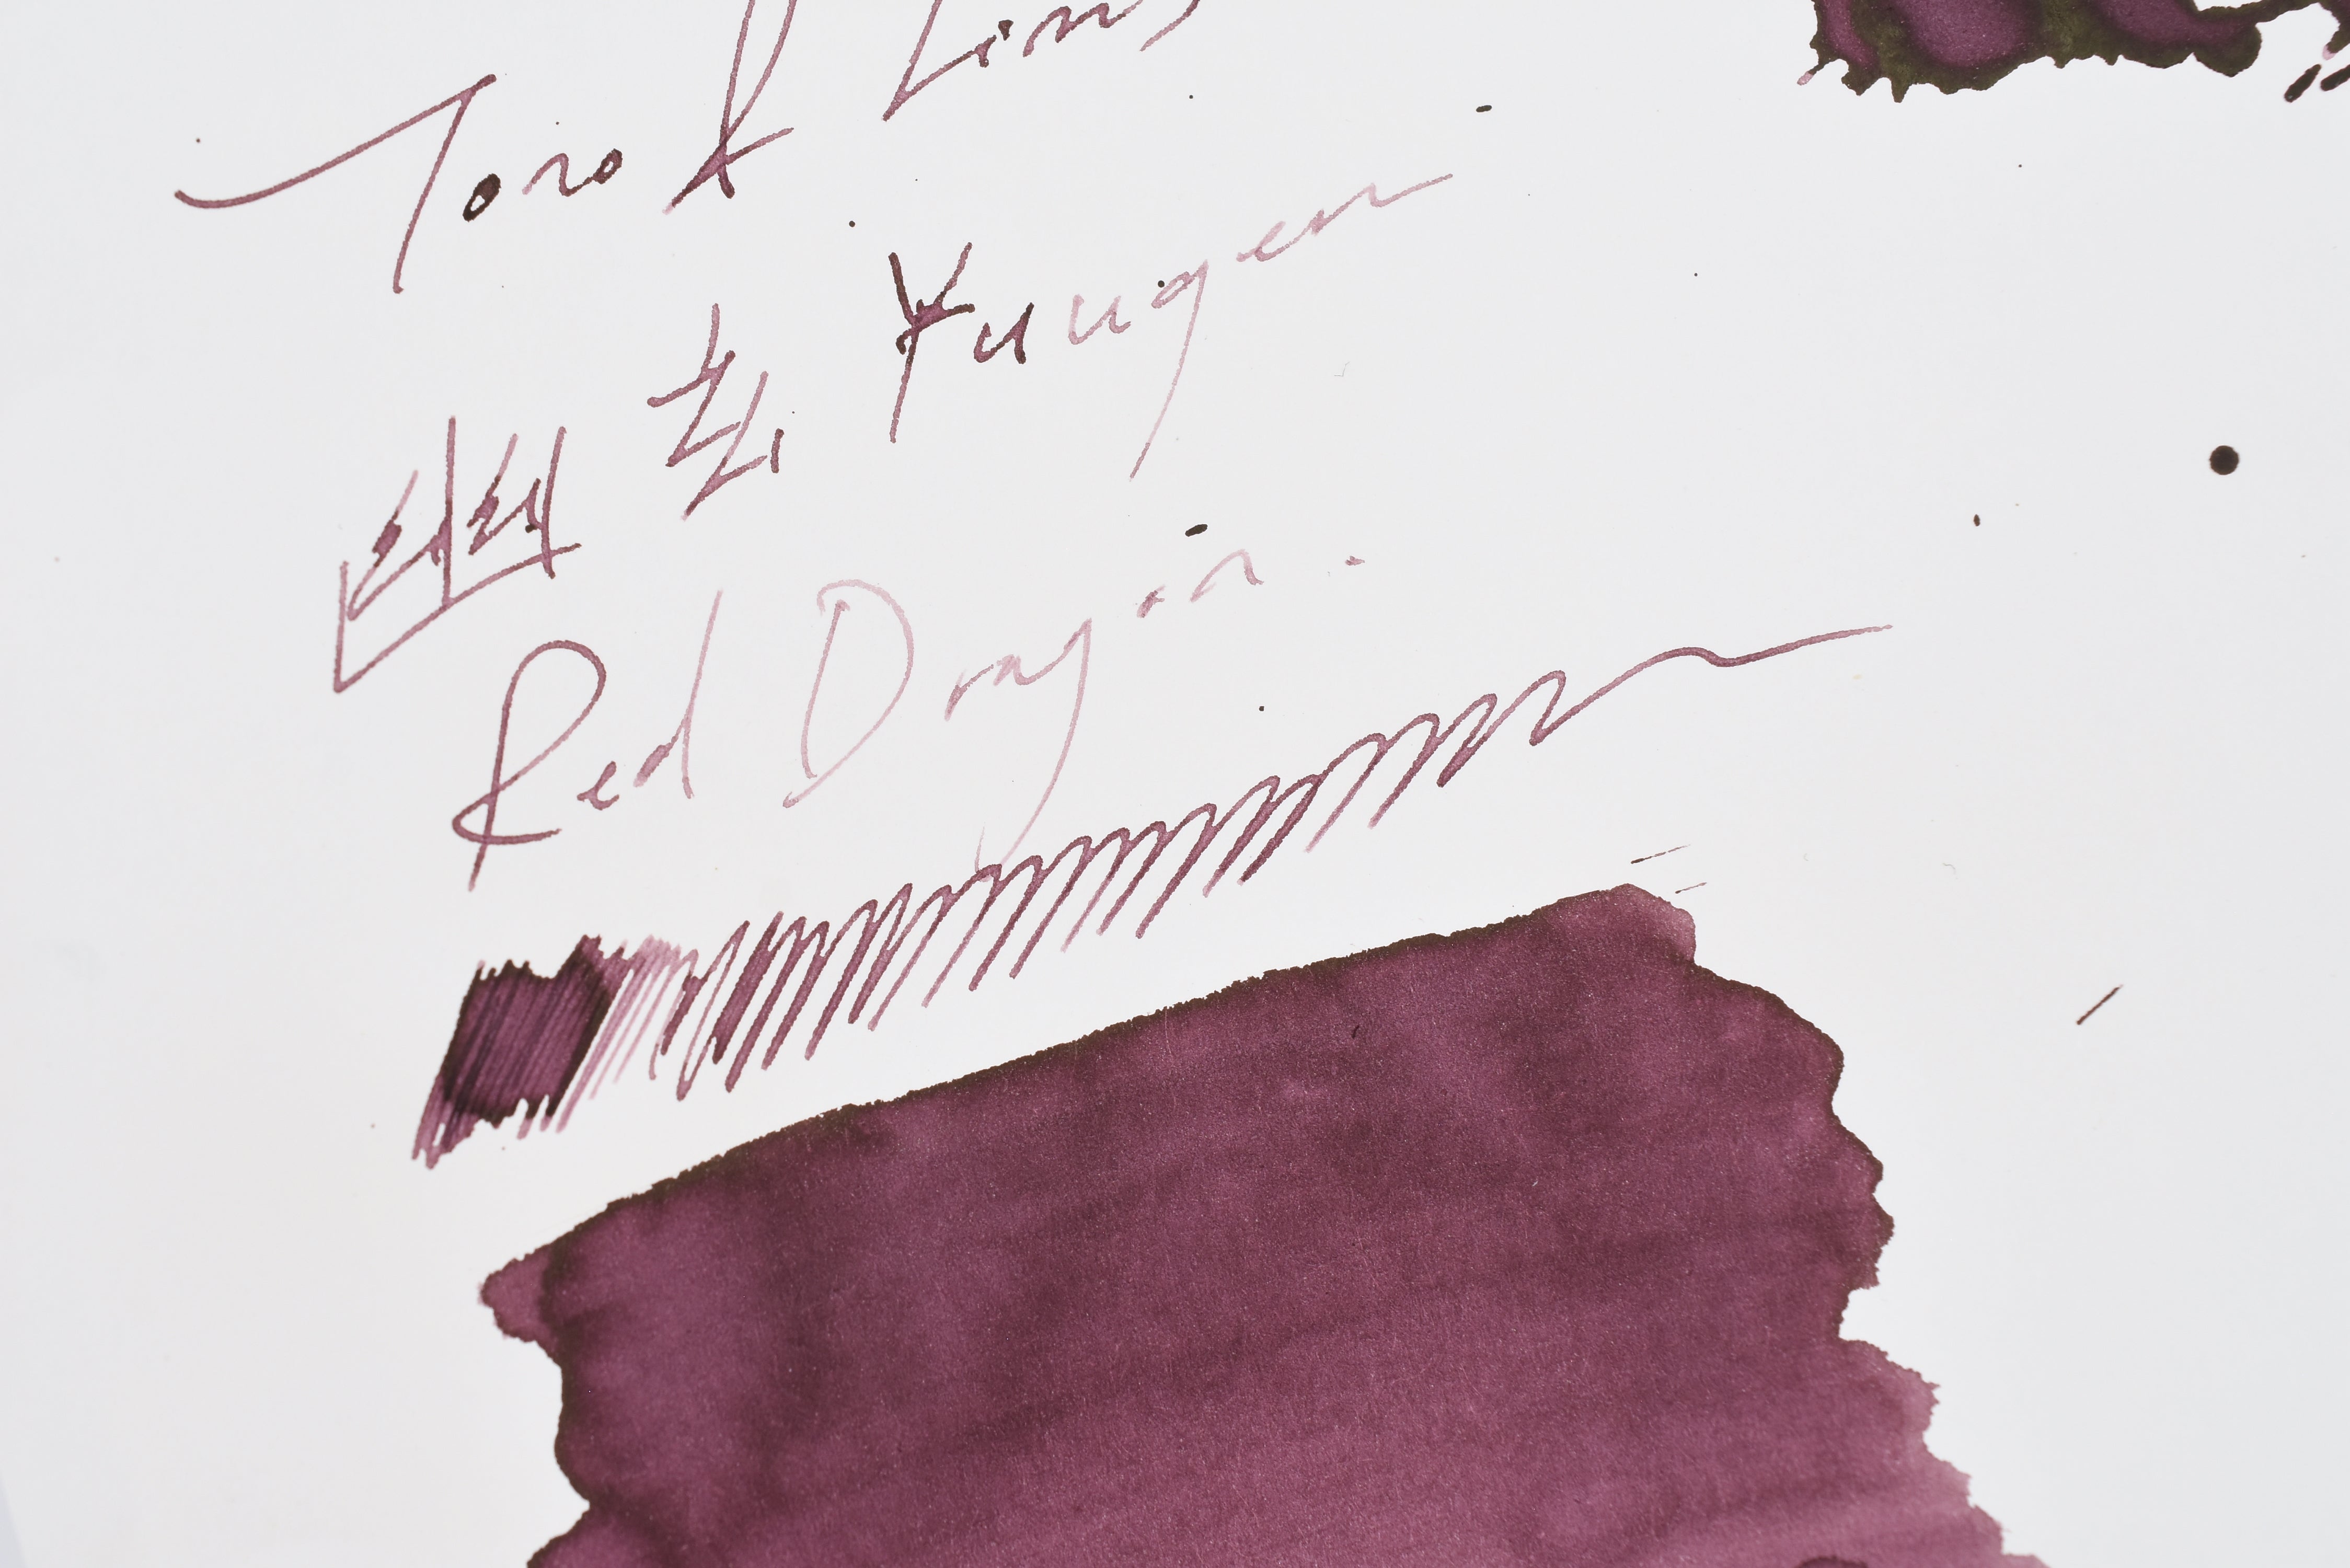 Tono & Lims
幽玄 Yuugen
Red Dragon.